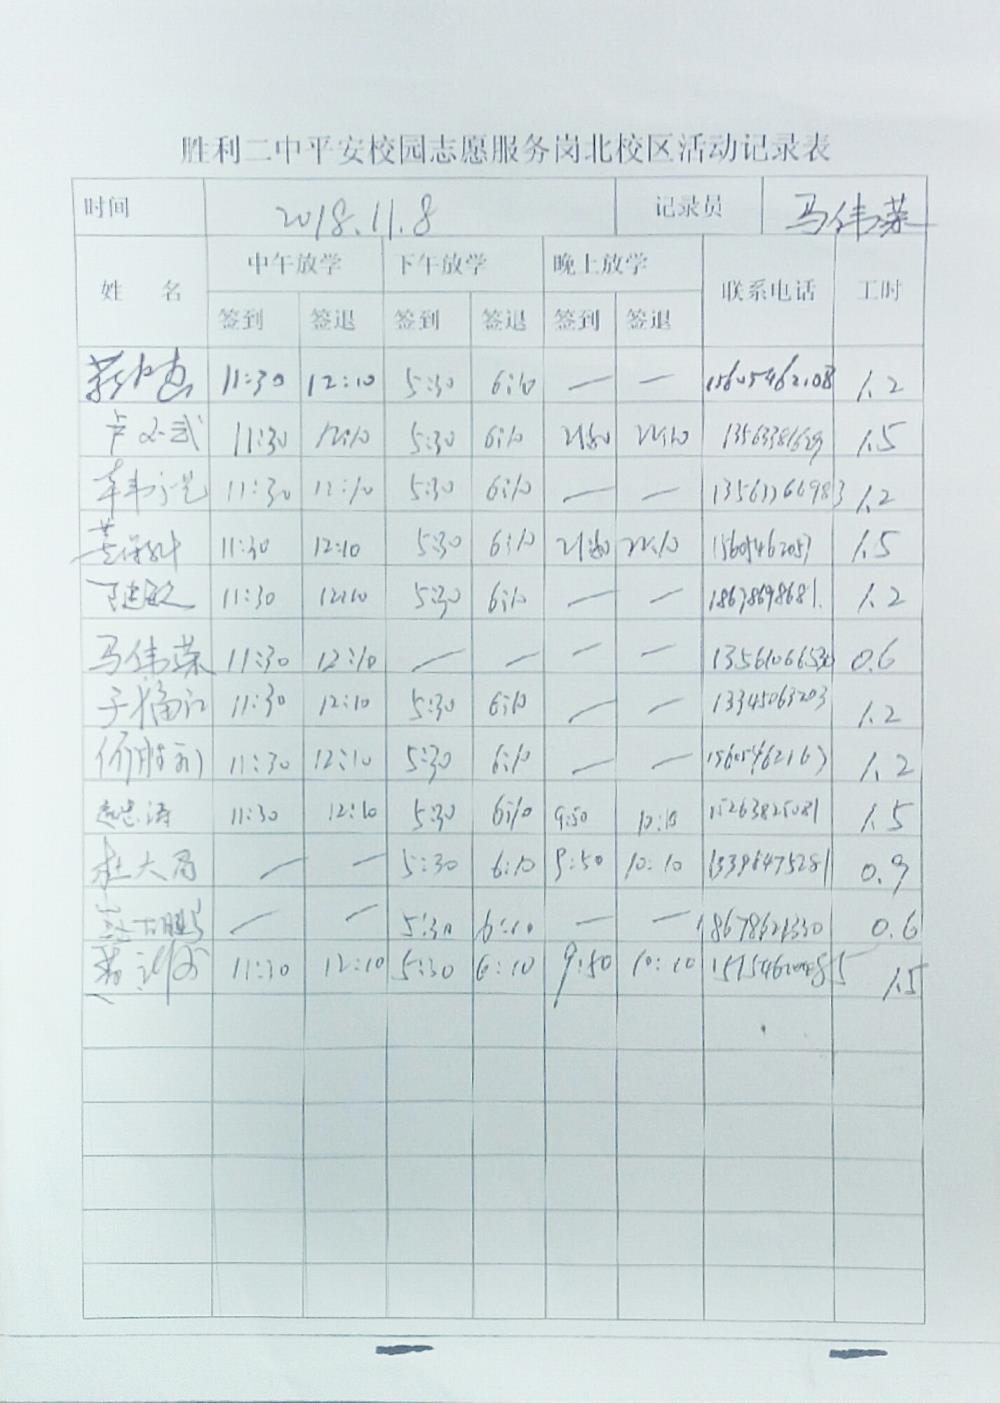 胜利二中平安校园志愿服务岗北校区活动记录表
时间 2018.11.8 记录员 马伟荣
姓 名 中午放学 下午放学 晚上放学 联系电话 工时
签到 签退 签到 签退 签到 签退
11:30 12:10 5:30 6:10 — — 15605462108 1.2
11:30 12:10 5:30 6:10 21:50 22:10 1.5
11:30 12:10 5:30 6:10 — — 1.2
11:30 12:10 5:30 6:10 21:50 22:10 1.5
11:30 12:10 5:30 6:10 — — 18678698681 1.2
马伟荣 11:30 12:10 — — — — 0.6
11:30 12:10 5:30 6:10 — — 13345063203 1.2
11:30 12:10 5:30 6:10 — — 15605462163 1.2
11:30 12:10 5:30 6:10 9:50 10:10 15263825081 1.5
杜大为 — — 5:30 6:10 9:50 10:10 13396475281 0.9
— — 5:30 6:10 — — 18678621330 0.6
11:30 12:10 5:30 6:10 9:50 10:10 1.5